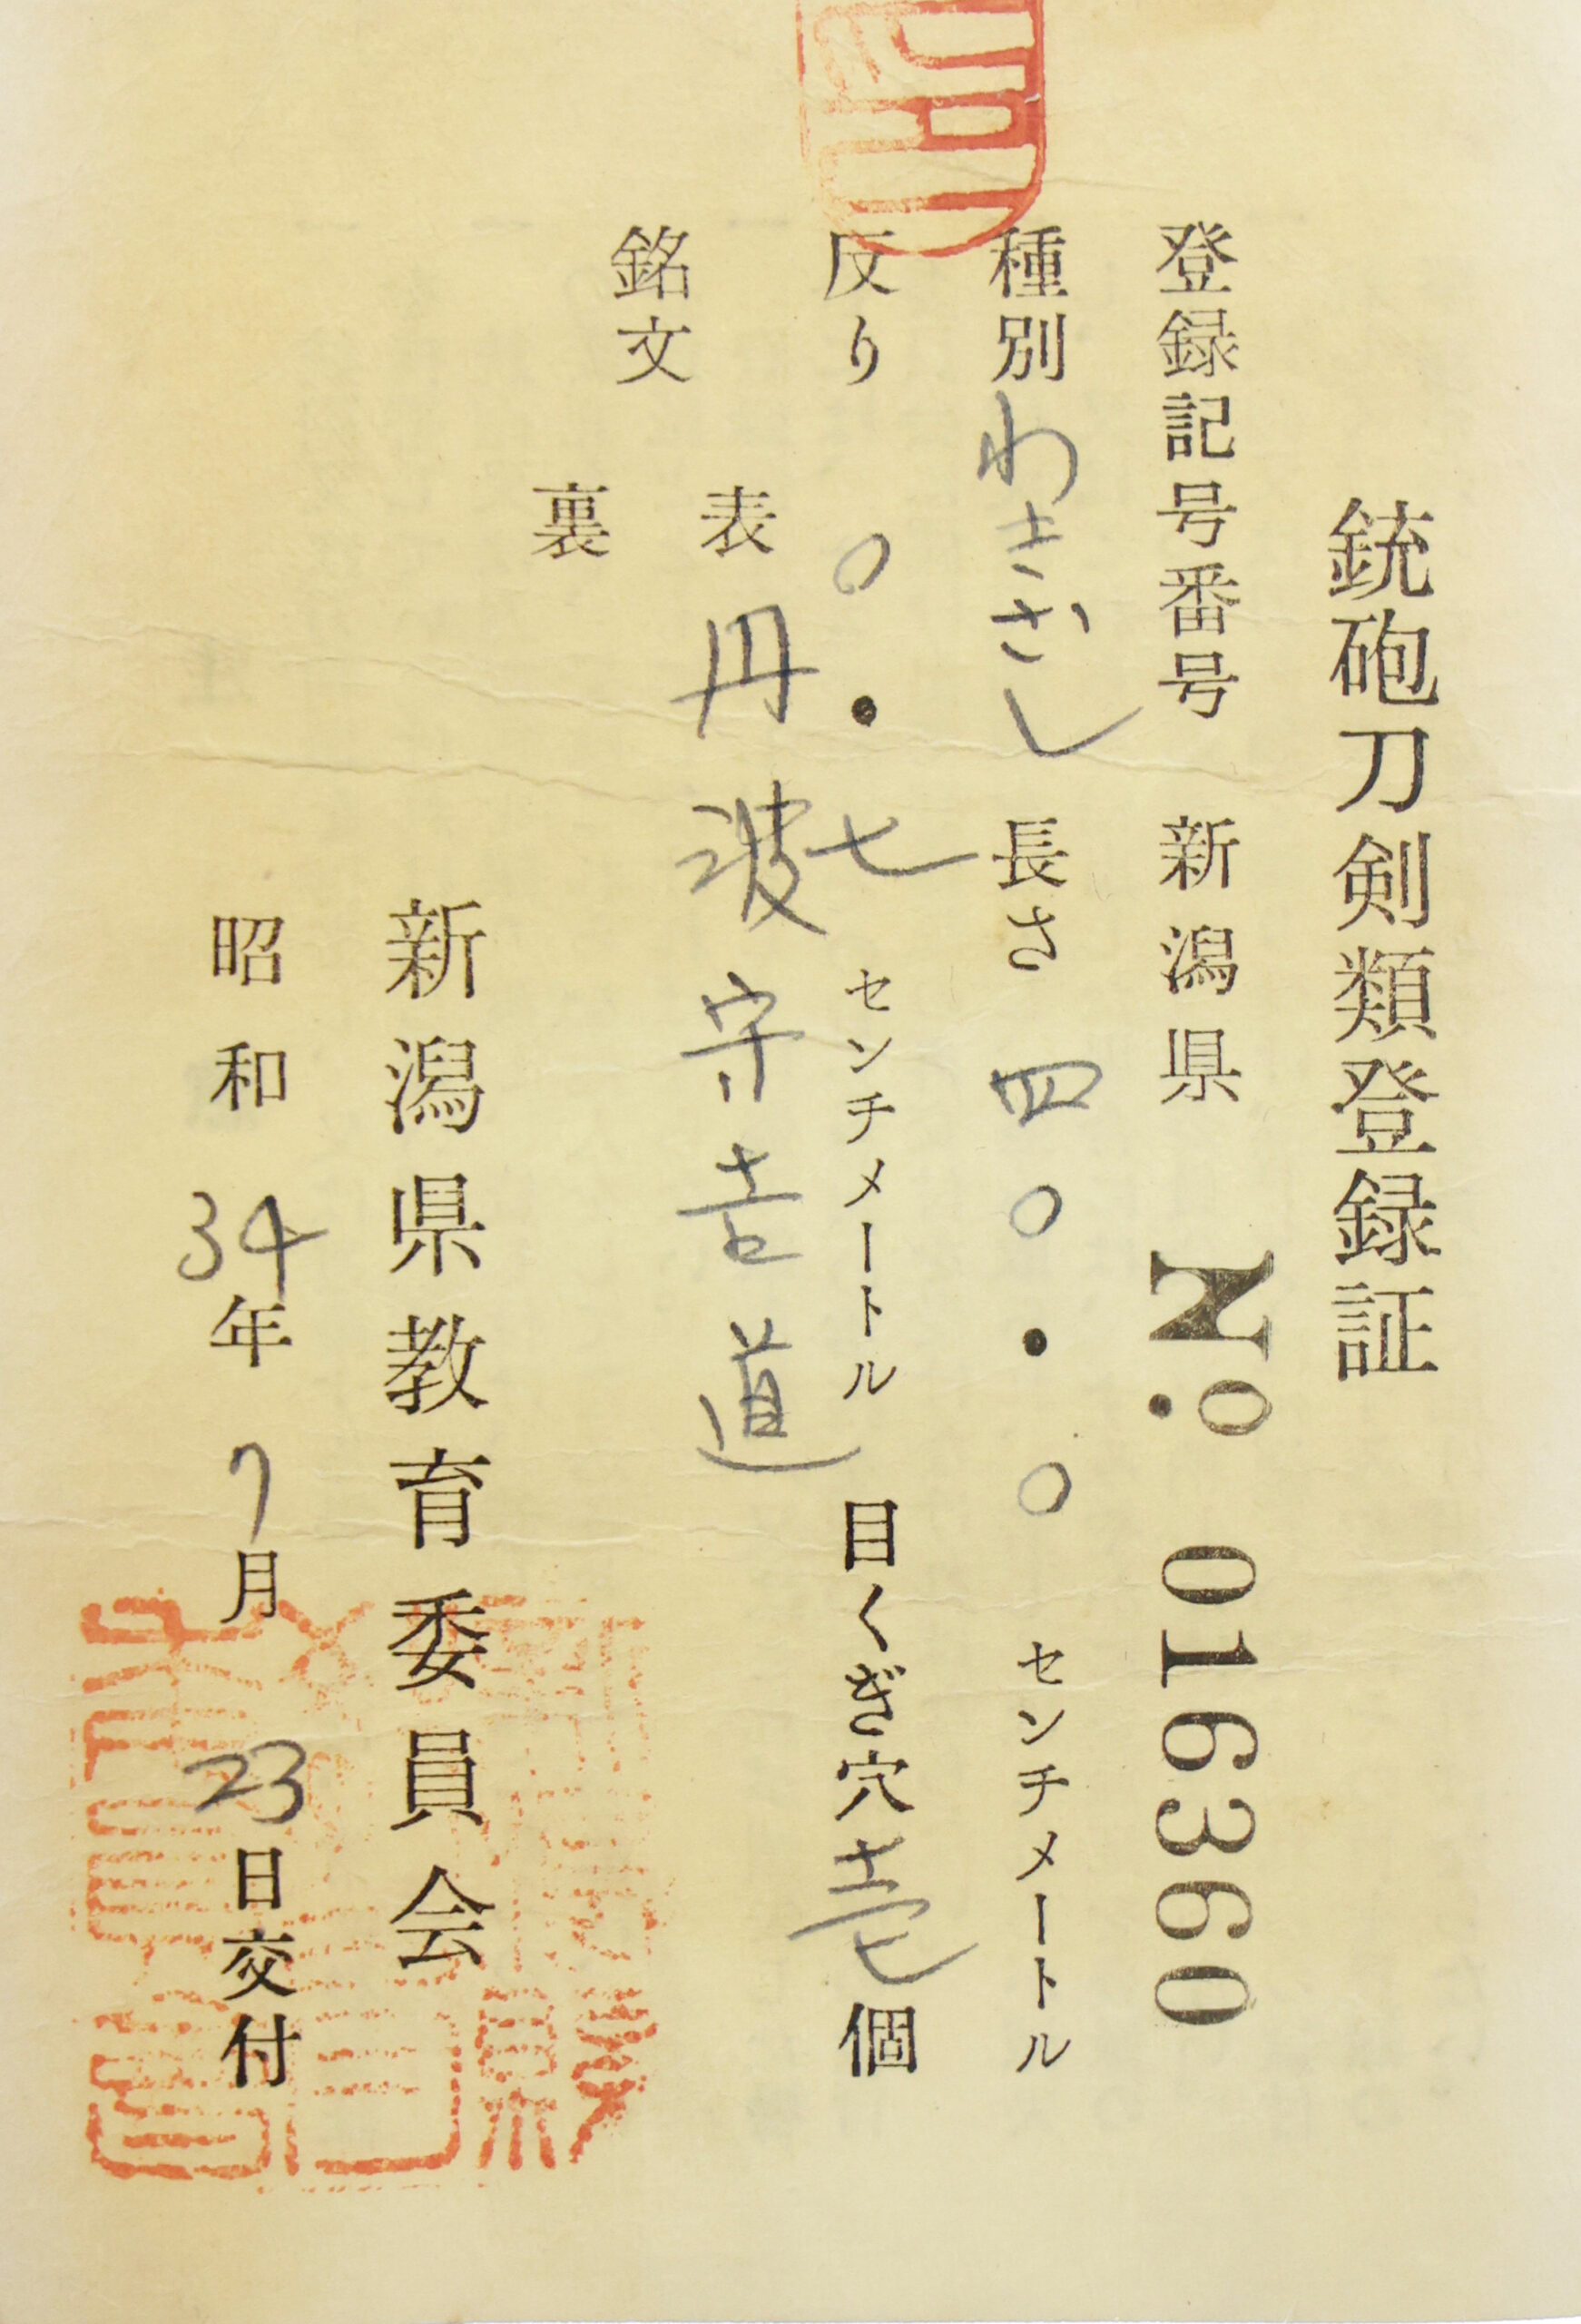 銃砲刀剣類登録証
登録記号番号 新潟県 No. 016360
種別 わきざし 長さ 四〇.〇 センチメートル
反り 〇.七 センチメートル 目くぎ穴 壱 個
銘文
表 丹波守吉道
裏
新潟県教育委員会
昭和34年7月23日交付